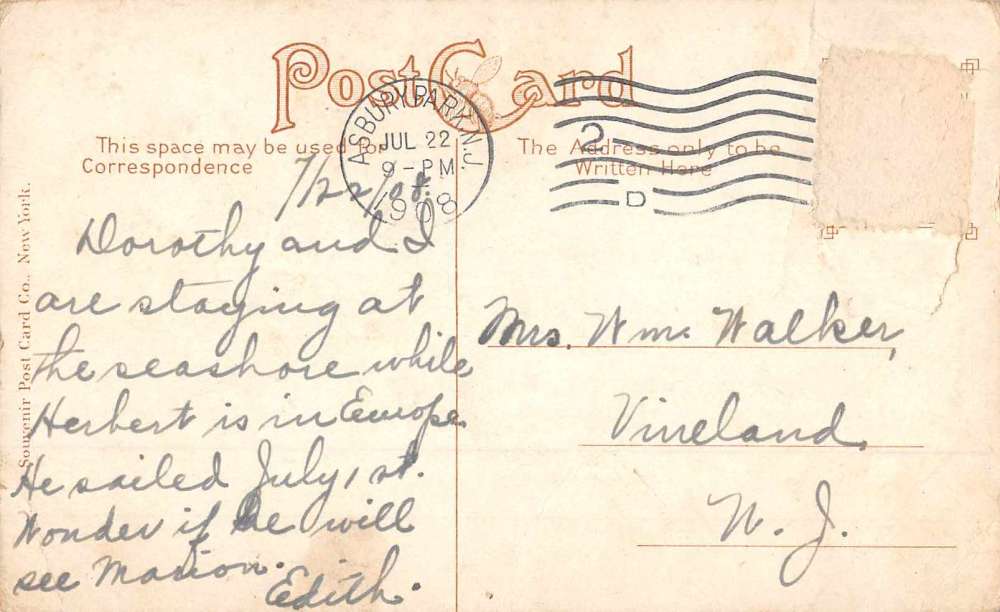 Post Card
This space may be used for
Correspondence
The Address only to be
Written Here
ASBURY PARK, N.J.
JUL 22
9-PM
1908
2
D
Souvenir Post Card Co., New York.
7/22/08.
Dorothy and I
are staying at
the seashore while
Herbert is in Europe
He sailed July 1st.
Wonder if he will
see Marion.
Edith.
Mrs. Wm. Walker,
Vineland,
N. J.